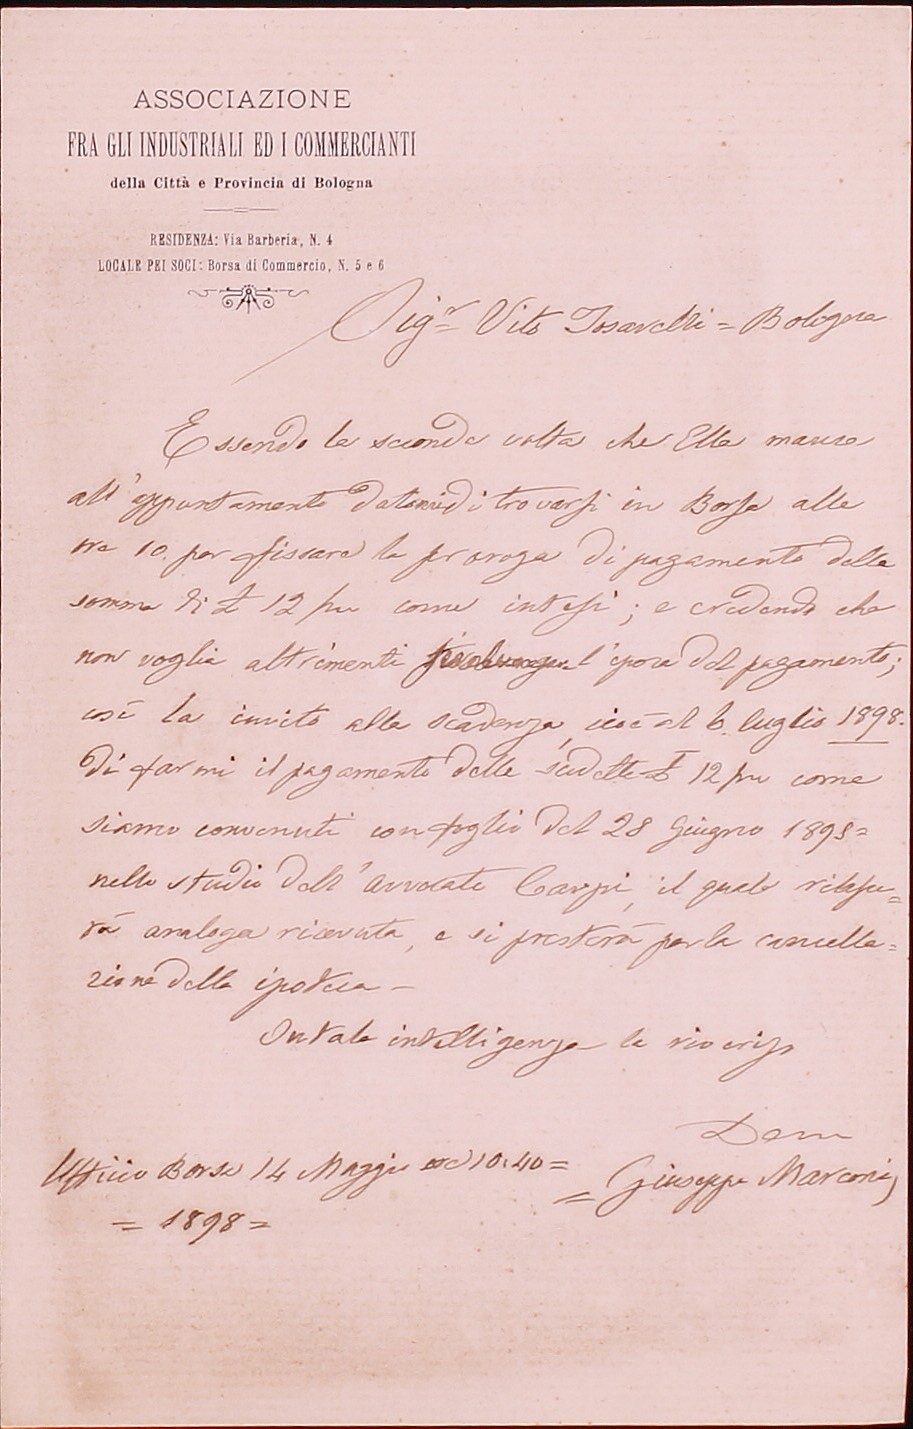 ASSOCIAZIONE
FRA GLI INDUSTRIALI ED I COMMERCIANTI
della Città e Provincia di Bologna
RESIDENZA: Via Barberia, N. 4
LOCALE PEI SOCI: Borsa di Commercio, N. 5 e 6
Sigr Vito = Bologna
Essendo la seconda volta che Ella manca
all'appuntamento datomi di trovarsi in Borsa alle
ore 10. per fissare la proroga di pagamento della
somma di £ 12 come intesi; e credendo che
non voglia altrimenti l'epoca del pagamento;
così la invito alla scadenza, cioè al 6. luglio 1898.
di farmi il pagamento delle suddette £ 12 come
siamo convenuti con foglio del 28 Giugno 1895=
nello studio dell'avvocato Carpi, il quale rilasce=
rà analoga ricevuta, e si presterà per la cancella=
zione della ipoteca —
In tale intelligenza la riverisco
Giuseppe Marconi
Ufficio Borsa 14 Maggio ore 10.40=
= 1898 =